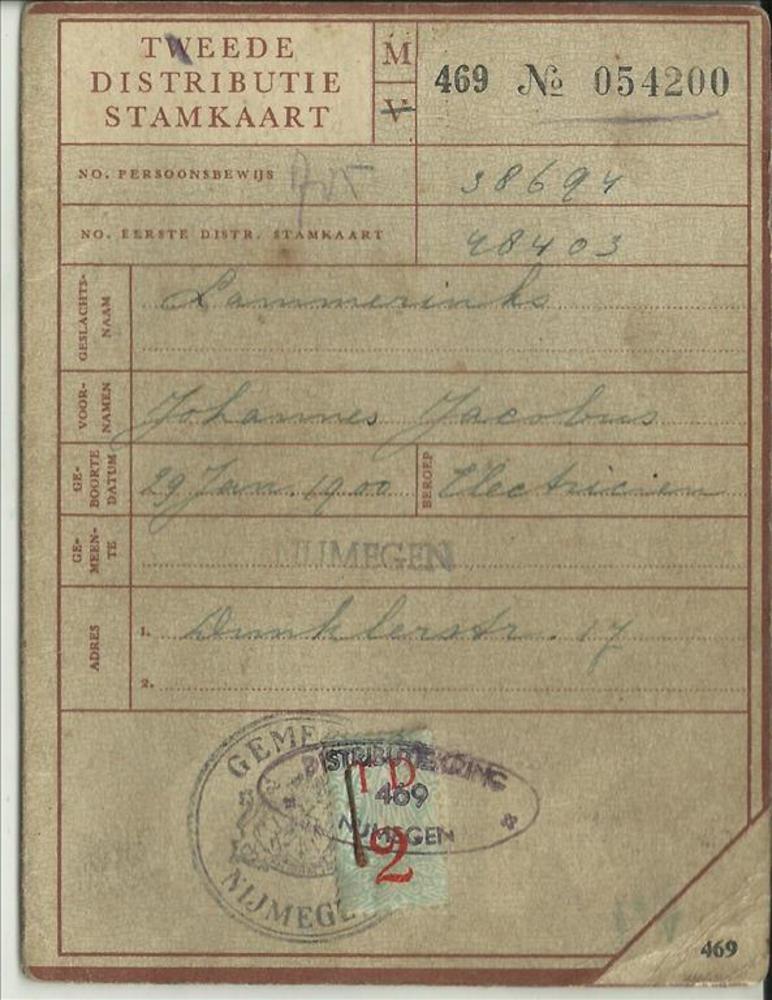 TWEEDE
DISTRIBUTIE
STAMKAART
M
V
469 № 054200
NO. PERSOONSBEWIJS
38694
NO. EERSTE DISTR. STAMKAART
48403
GESLACHTS-
NAAM
Lammerinks
VOOR-
NAMEN
Johannes Jacobus
GE-
BOORTE
DATUM
29 Jan. 1900
BEROEP
Electricien
GE-
MEEN-
TE
NIJMEGEN
ADRES
1. Dunklerstr. 17
2.
GEME
NIJMEGE
DISTRIBUTIEKRING
469
NIJMEGEN
TD
2
469